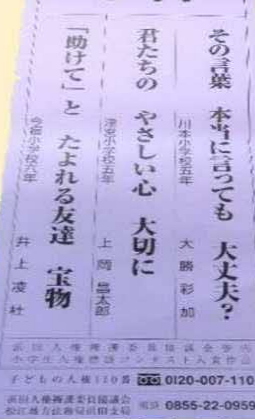 その言葉 本当に言っても 大丈夫?
川本小学校五年 大勝彩加
君たちの やさしい心 大切に
津宮小学校五年 上岡昌太郎
「助けて」と たよれる友達 宝物
今福小学校六年 井上凌杜
浜田人権擁護委員協議会管内
小学生人権標語コンテスト入賞作品
子どもの人権110番 0120-007-110
浜田人権擁護委員協議会
松江地方法務局浜田支局 電話 0855-22-0959